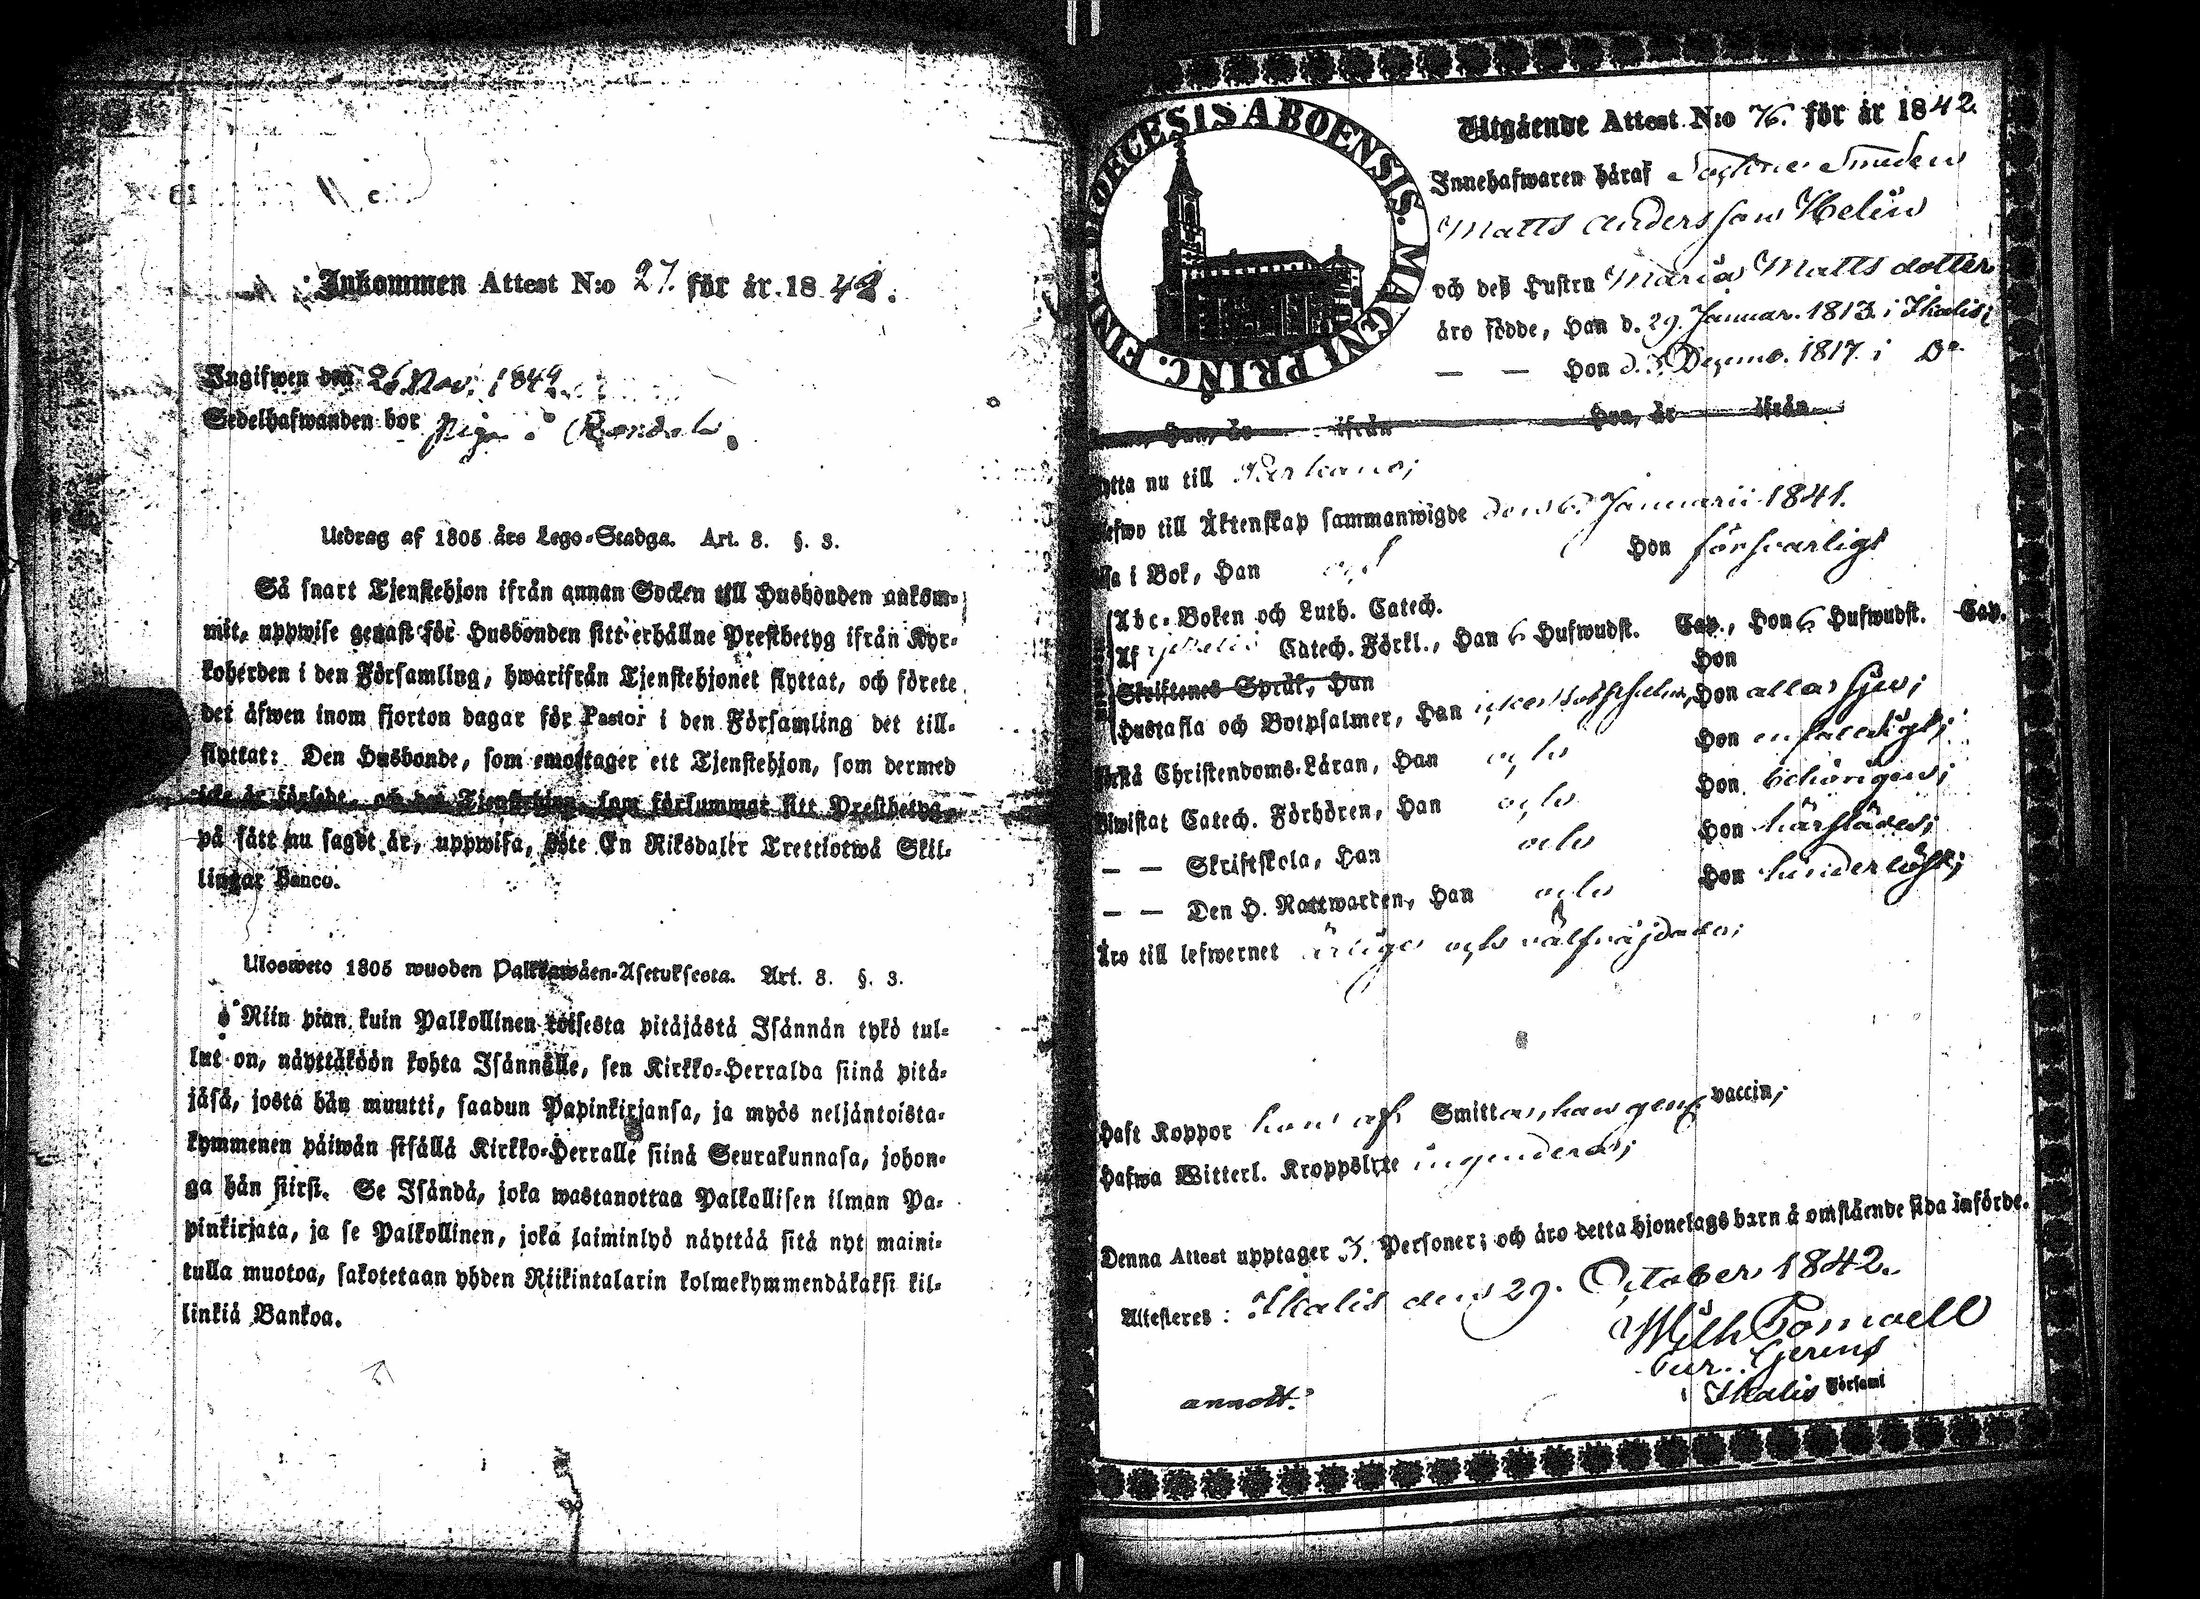 Inkommen Attest N:o 27. för år 18 42.
Ingifwen den 26 Nov. 1849
Sedelhafwanden bor Piga i
Utdrag af 1805 års Lego-Stadga. Art. 8. §. 3.
Så snart Tjenstehjon ifrån annan Socken till Husbonden ankom-
mit, uppwise genast för Husbonden sitt erhållne Prestbetyg ifrån Kyr-
koherden i den Församling, hwarifrån Tjenstehjonet flyttat, och förete
det äfwen inom fjorton dagar för Pastor i den Församling det till-
flyttat: Den Husbonde, som emottager ett Tjenstehjon, som dermed
icke är försedt, och det Tjenstehjon, som försummar sitt Prestbetyg,
på sätt nu sagdt är, uppwisa, böte En Riksdaler Trettiotwå Skil-
lingar Banco.
Ulosweto 1805 wuoden Palkkawäen-Asetuksesta. Art. 8. §. 3.
Niin pian kuin Palkollinen toisesta pitäjästä Isännän tykö tul-
lut on, näyttäköön kohta Isännälle, sen Kirkko-Herralda siinä pitä-
jäsä, josta hän muutti, saadun Papinkirjansa, ja myös neljäntoista-
kymmenen päiwän sisällä Kirkko-Herralle siinä Seurakunnasa, johon-
ga hän siirsi. Se Isändä, joka wastanottaa Palkollisen ilman Pa-
pinkirjata, ja se Palkollinen, joka laiminlyö näyttää sitä nyt maini-
tulla muotoa, sakotetaan yhden Riikintalarin kolmekymmendäkaksi kil-
linkiä Bankoa.
DIOECESIS ABOENSIS. MAGNI PRINC. FINL.
Utgående Attest N:o 76. för år 1842.
Innehafwaren häraf Smeden
Matts Andersson Helin
och deß Hustru Maria Matts dotter
äro födde, Han d. 29. Januar. 1813. i Ikalis;
— — Hon d. 3 Dezemb. 1817. i Do
Han, är ifrån Hon, är ifrån
ytta nu till Parkano;
lefwo till Äktenskap sammanwigde den 6. Januarii 1841.
sa i Bok, Han och Hon försvarligt
Abc-Boken och Luth. Catech.
Af Catech. Förkl., Han 6 Hufwudst. Cap., Hon 6 Hufwudst. Cap.
Skriftenes Språk, Han Hon
Hustafla och Botpsalmer, Han Hon alla sju;
rstå Christendoms-Läran, Han och Hon enfaldigt;
biwistat Catech. Förhören, Han och Hon behörigen;
— — Skriftskola, Han och Hon härstädes;
— — Den H. Nattwarden, Han och Hon hinderlöst;
Äro till lefwernet ärliga och välfräjdade;
Haft Koppor hon af Smittan, han gen. vaccin;
Hafwa Witterl. Kroppslyte ingendera;
Denna Attest upptager 3. Personer; och äro detta hjonelags barn å omstående sida införde.
Attesteres: Ikalis den 29. October 1842.
Wilh Pomoell
Cur. Gerens
i Ikalis Församl
annott.